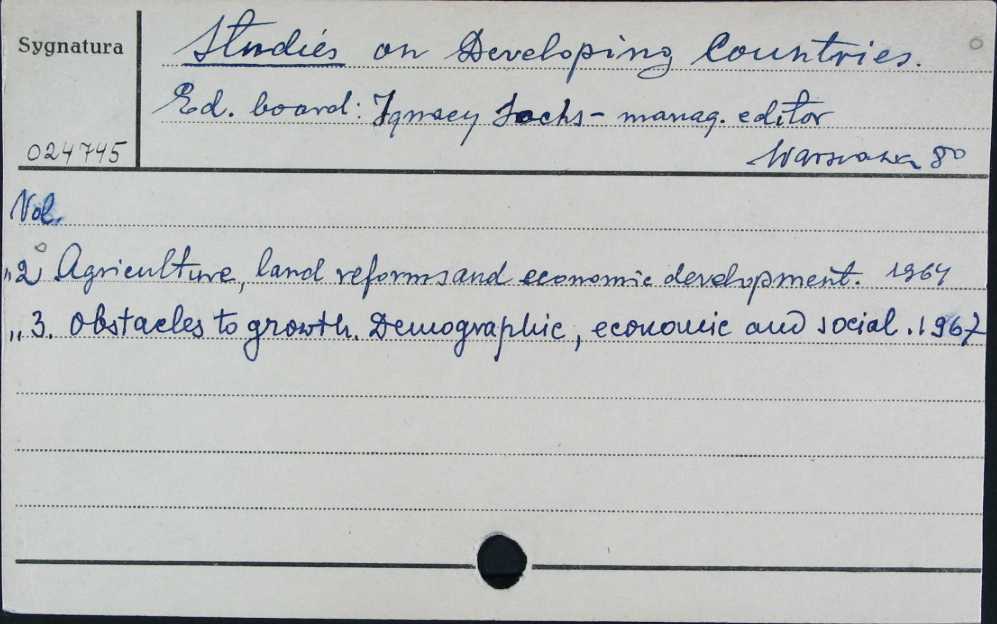 Sygnatura
Studies on Developing Countries.
Ed. board: Ignacy Sachs - manag. editor
024745
Warszawa 80
Vol.
„ 2 Agriculture, land reforms and economic development. 1964
„ 3. Obstacles to growth. Demographic, economic and social. 1967